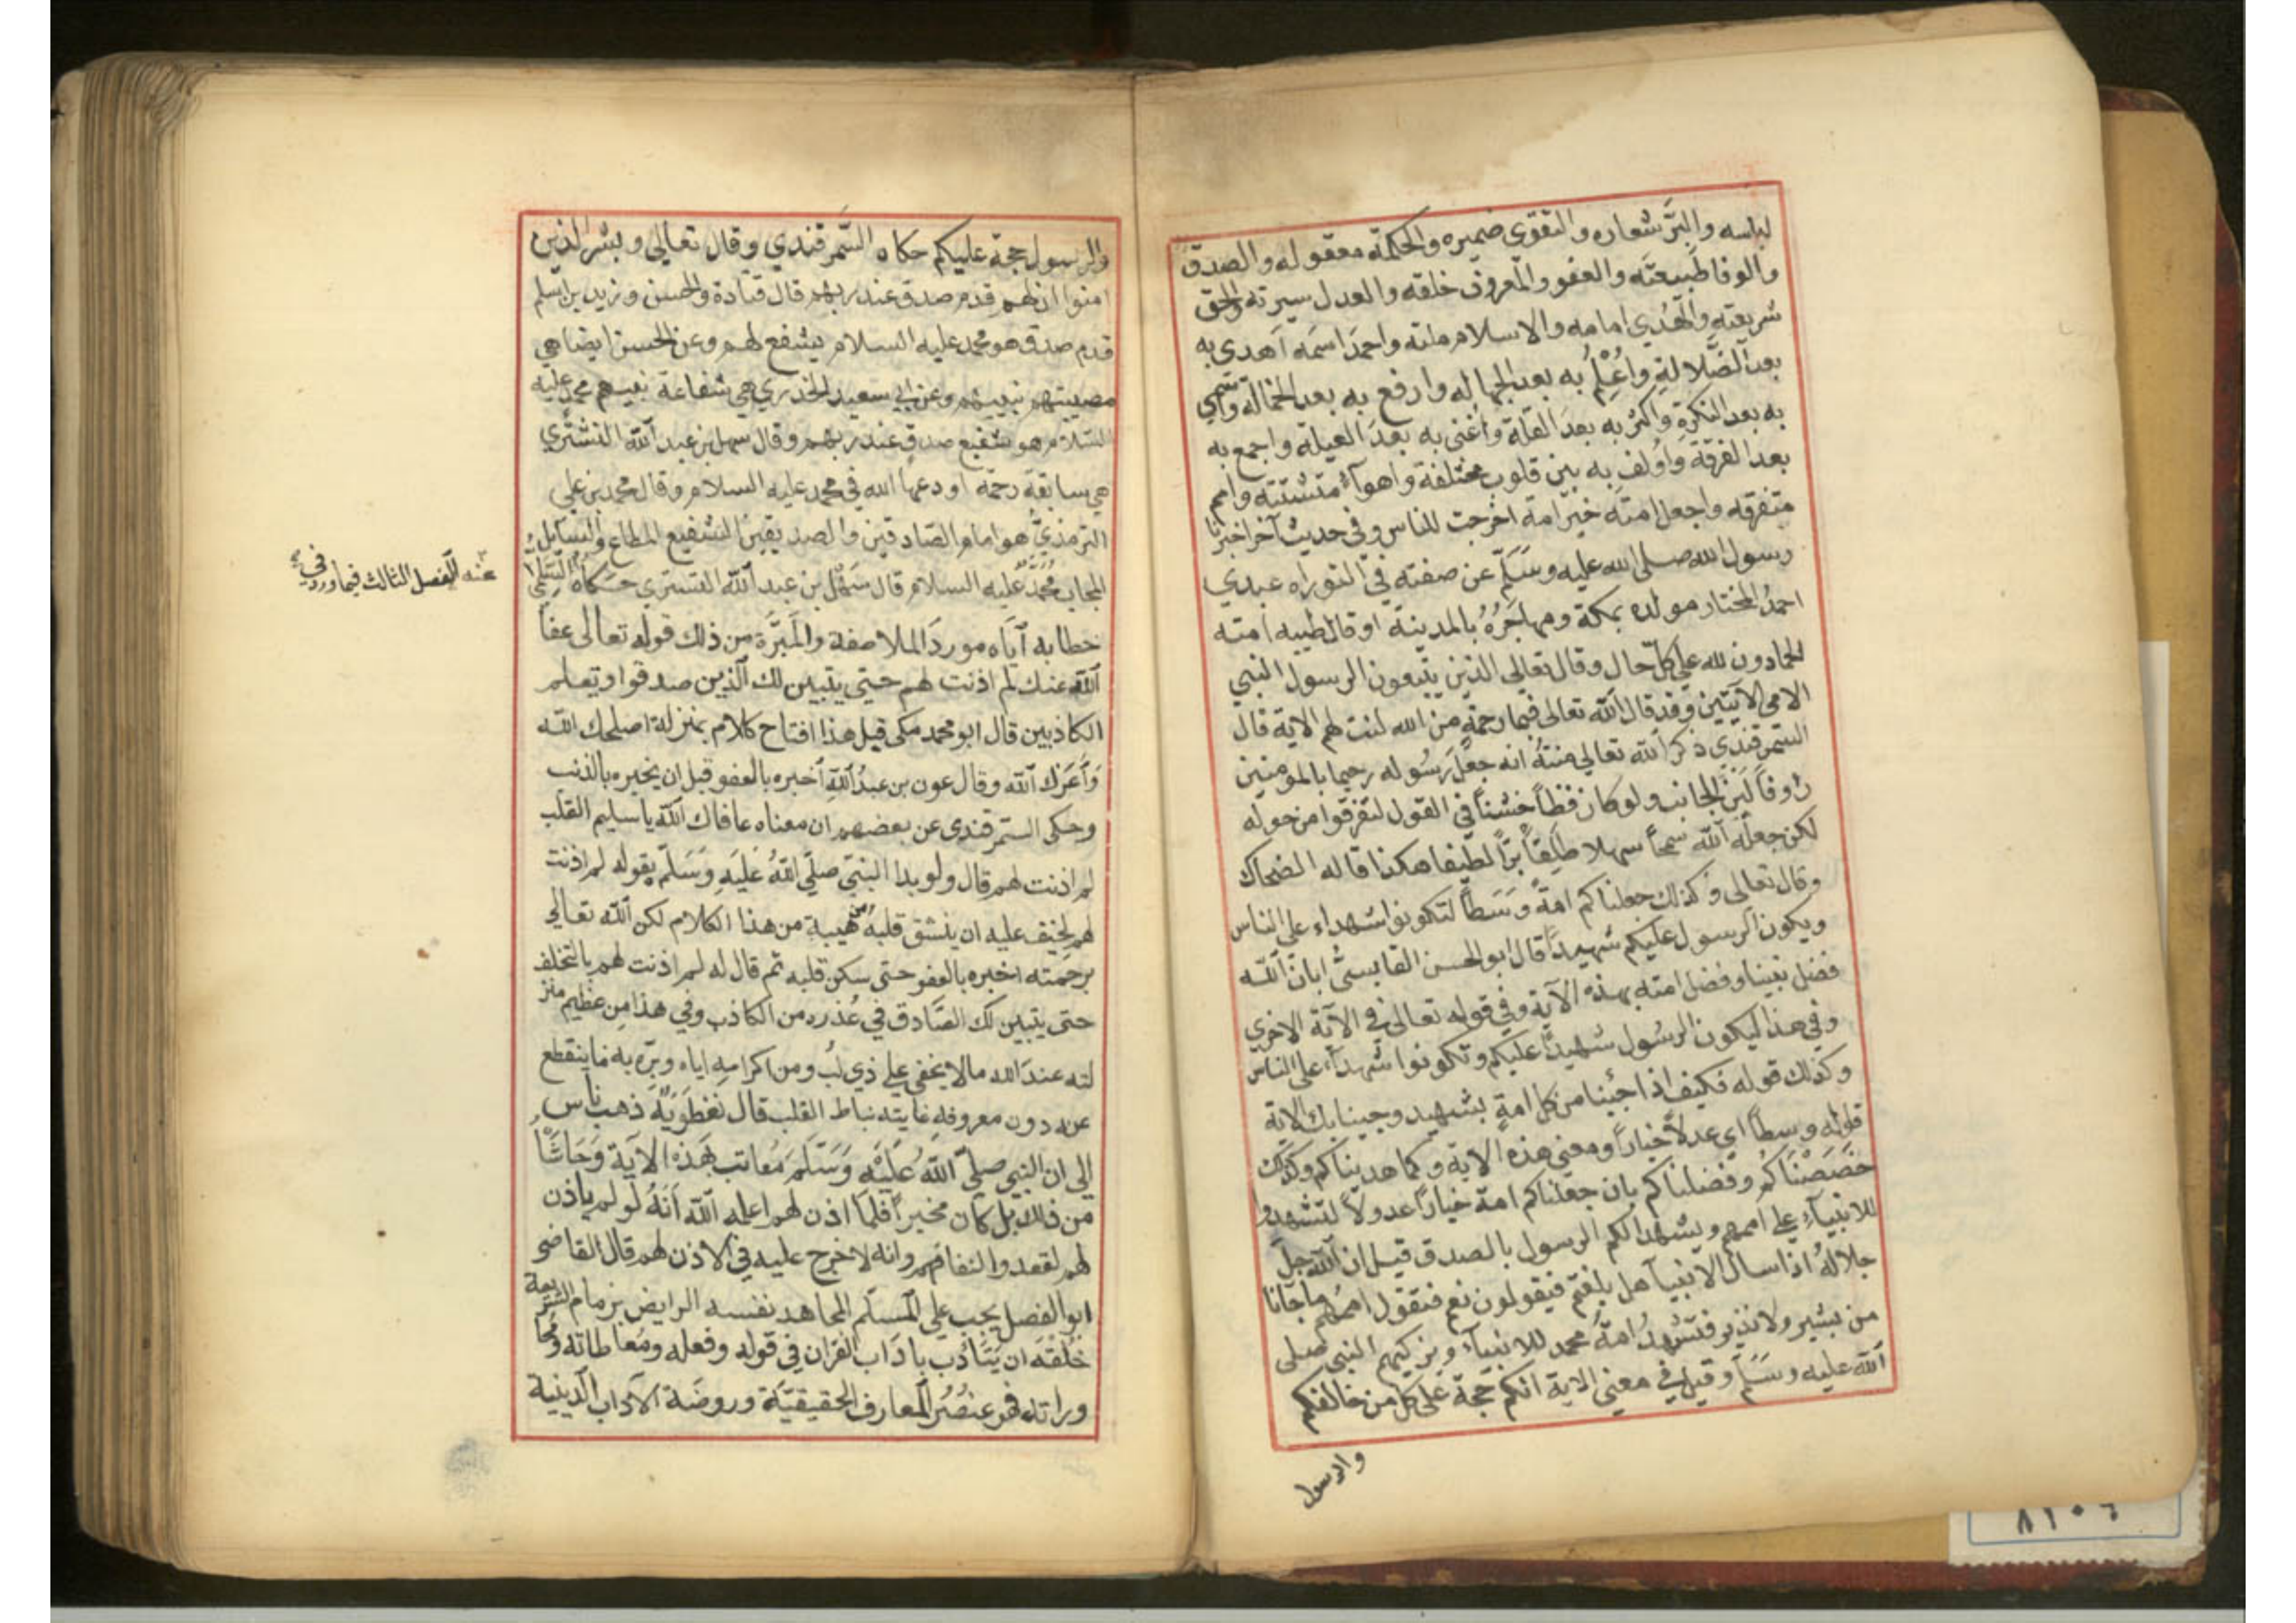 لباسه والبرَّ شعاره والتقوى ضميره والحكمة معقوله والصدق
والوفا طَبيعتَه والعفو والمعروف خلقه والعدل سيرته والحق
شريعته والهُدي امامه والاسلام ملته واحمدَ اسمَه اَهدى به
بعد الضّلالةِ واُعْلِمُ به بعد الجهاله وارفع به بعد الخمالة واُسمي
به بعد النكرةِ واكثر به بعدَ القلّة واُغنى به بعدَ العيلة واجمع به
بعد الفرقة واُولف به بين قلوب مختلفة واهوآء متشتته وامم
متفرقه واجعل امتَه خيَر امة اخرجت للناس وفي حديث آخر اخبرنا
رسول الله صلى الله عليه وسَلّم عن صفته في التوراه عبدي
احمدُ المختار مولده بمكة ومهاجَرُهُ بالمدينة او قال طيبه امته
الحمادون لله على كلّ حال وقال تعالى الذين يتبعون الرسول النبي
الامي الايتين وقد قال الله تعالى فبما رحمةٍ من الله لنت لهم الاية قال
السّمرقندي ذكر الله تعالى منتهُ انه جعل رَسُوله رحيما بالمومنين
رَاوفاً لَيّنَ الجانب ولو كان فظاً خشناً في القول لتفرقوا من حوله
لكن جعلَه الله سَمحاً سهلا طلِقاً برًّا لطيفا هكذا قاله الضحاك
وقال تعالى وكذلك جعلناكم امةً وَسَطًا لتكونوا شهداء على الناس
ويكون الرسول عليكم شهيدًا قال ابو الحسن القابسىُّ ابانَ الله
فضل نبينا وفضل امته بهذه الآية وفي قوله تعالى في الآية الاخري
وفي هذا ليكون الرسُول شهيدًا عليكم وتكونوا شهدآء على الناس
وكذلك قوله فكيف اذا جئنا من كل امةٍ بشهيد وجينا بك الاية
قوله وسطًا اي عدلاً خياراً ومعنى هذه الاية وكما هديناكم وكذلك
خصَصْنَاكُم وفضلناكم بان جعلناكم امة خياراً عدولاً لتشهدوا
للانبيآءِ على اممهم ويشهد لكم الرسول بالصدق قيل ان الله جلّ
جلالهُ اذا سال الانبيآ هل بلغتم فيقولون نعم فتقول اممُهُم ما جآنا
من بشير ولا نذير فتشهدُ امةُ محمد للانبيآءِ ويزكيهم النبي صلى
الله عليه وسَلم وقيل في معنى الاية انكم حجة على كل من خالفكم
والرسول
والرسول حجة عليكم حكاه السّمرقندي وقال تعالى وبشر الذين
امنوا ان لهم قدم صدق عند ربهم قال قتادة والحسن وزيد بن اسلم
قدم صدق هو محمد عليه السلام يشفع لهم وعن الحسن ايضا هي
مصيبتهم بنبيهم وعن ابي سعيد الخدري هي شفاعة نبيهم محمد عليه
السّلام هو شفيع صدقٍ عند ربهم وقال سهل بن عبد الله التشتري
هي سابقة رحمة اودعها الله في محمد عليه السلام وقال محمد بن علي
الترمذيُّ هو امام الصّادقين والصديقين الشفيع المطاع والسّايل
المجاب مُحُمَّد عليه السلام قال سَهْل بن عبد الله التستري حَكاه
عنه الفصل الثالث فيما ورد في
خطابه آيّاه موردَ الملاصفة والمَبرَّة من ذلك قوله تعالى عفا
الله عنك لم اذنت لهم حتى يتبين لك الذين صدقوا وتعلم
الكاذبين قال ابو محمد مكى قيل هذا افتتاح كلام بمنزلة اصلحك الله
وَأعزك الله وقال عون بن عبدُ الله اَخبره بالعفو قبل ان يخبره بالذنب
وحكى السّمرقندى عن بعضهم ان معناه عافاك الله يا سليم القلب
لم اذنت لهم قال ولو بدا النبيّ صلّى اللهُ عَليَهِ وَسَلّم بقوله لم اذنت
لهم لخيف عليه ان ينشق قلبهُ من هيبة من هذا الكلام لكن الله تعالى
برحمته اخبره بالعفو حتى سكن قلبه ثم قال له لم اذنت لهم بالتخلف
حتى يتبين لك الصّادق في عُذره من الكاذب وفي هذا مِن عظيم منز
لته عندَ الله ما لا يخفى على ذي لب ومن اكرامهِ اياه وبرّه به ما ينقطع
عن دون معروفهِ غايته نياط القلب قال نفطَوَيْهِ ذهب ناس
الى ان النبي صلّى اللهُ عَليْهِ وَسَلَمَ مُعاتب بهَذه الآية وَحَاشاُ
من ذالك بل كان مخيراً فلمّا اذن لهم اعلمه الله اَنَهُ لو لم ياذن
لهم لقعدوا لنفاقهم وانه لا خرج عليه في الاذن لهم قال القاضى
ابو الفضل يجب على المسلم المجاهد نفسه الرايض بزمام الشريعة
خُلقَه ان يَتَأدب باَدَاب القران في قوله وفعله ومُعاطاته ومحا
وراته فهو عنصُرُ المعارف الحقيقيّة وروضَة الآداب الدينية
٨٢٠٤